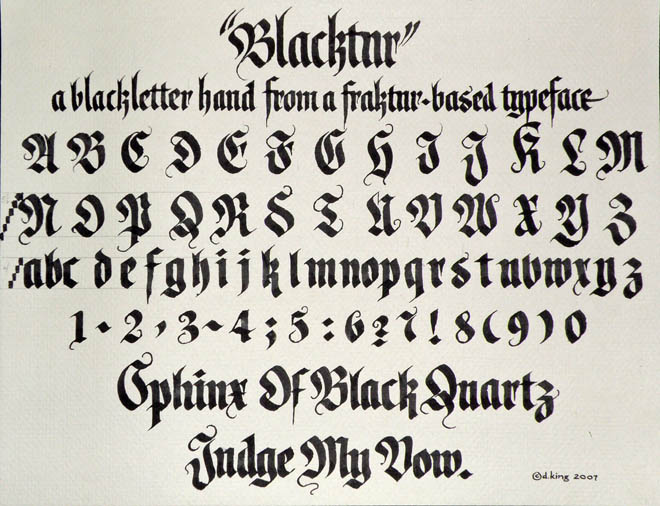 "Blacktur"
a blackletter hand from a fraktur-based typeface
A B C D E F G H I J K L M
N O P Q R S T U V W X Y Z
a b c d e f g h i j k l m n o p q r s t u v w x y z
1 - 2 , 3 ~ 4 ; 5 : 6 ? 7 ! 8 ( 9 ) 0
Sphinx Of Black Quartz
Judge My Vow.
©d.king 2007